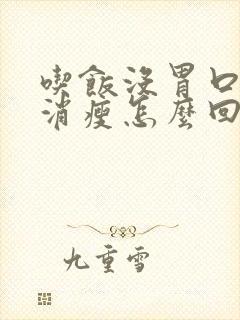 喫飯沒胃口
消瘦怎麼回
九重雪